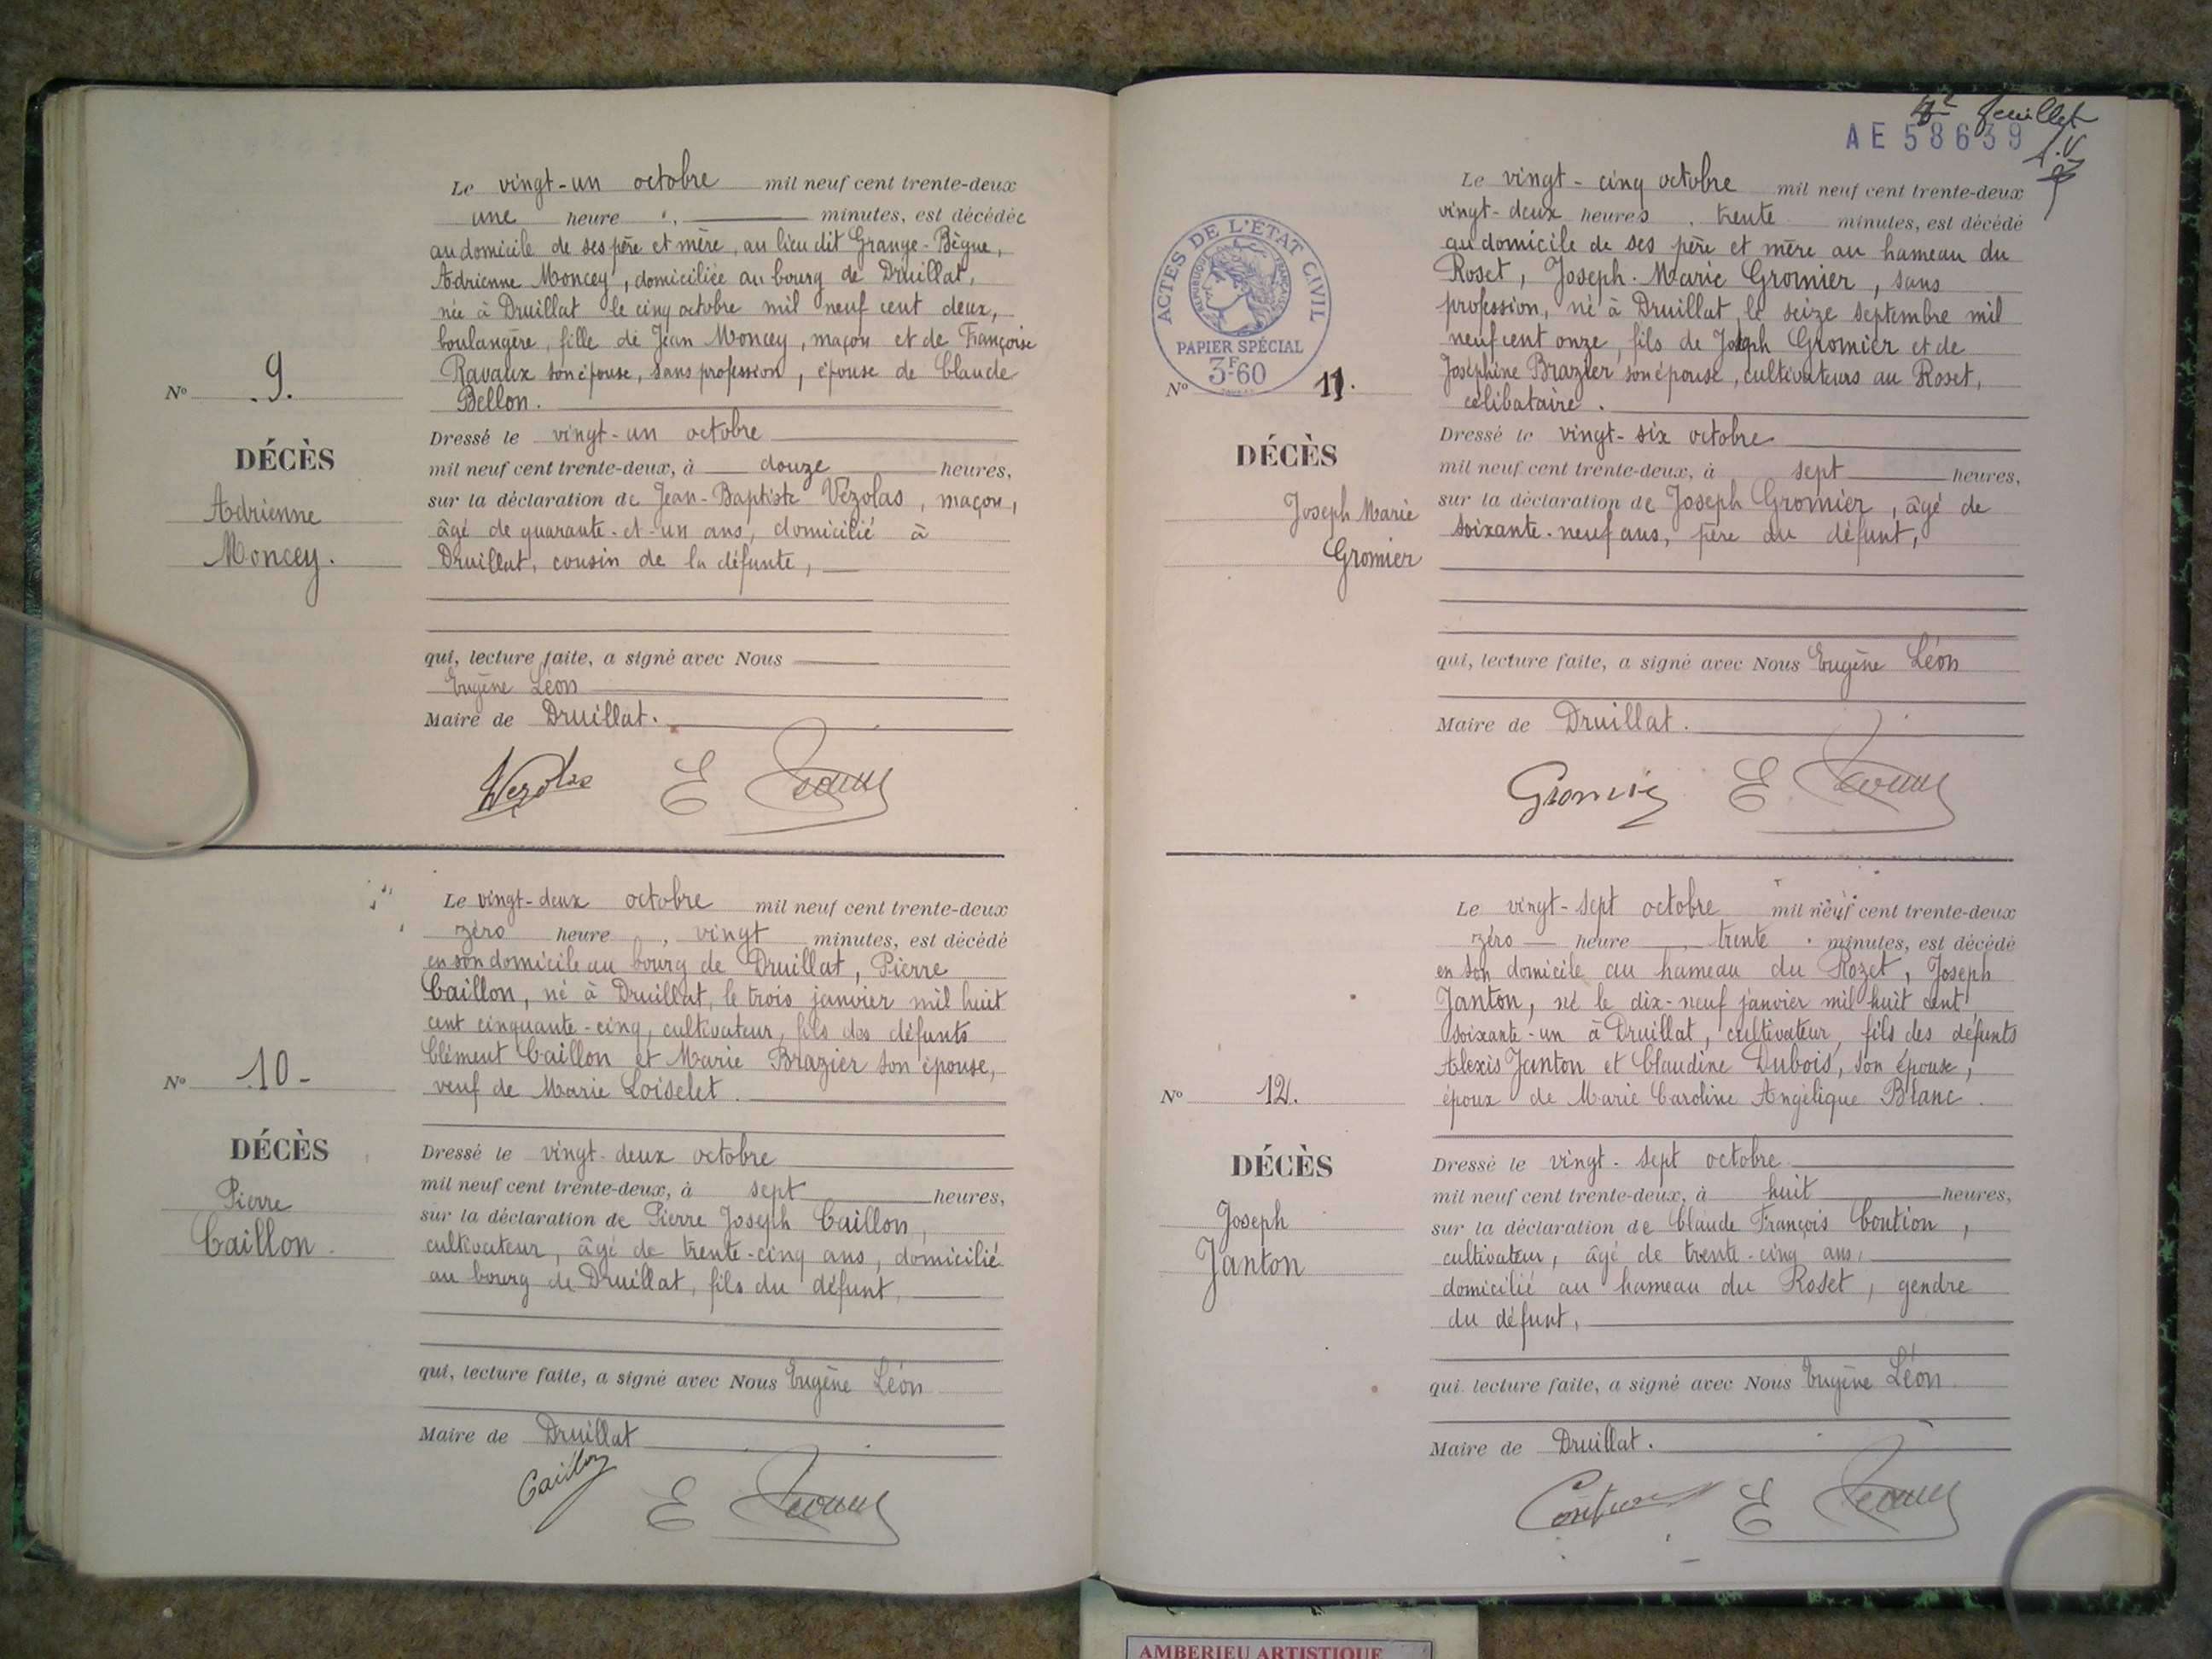 Le vingt-un octobre mil neuf cent trente-deux
une heure , minutes, est décédée
au domicile de ses père et mère, au lieu dit Grange-Bègue,
Adrienne Moncey, domiciliée au bourg de Druillat,
née à Druillat le cinq octobre mil neuf cent deux,
boulangère, fille de Jean Moncey, maçon et de Françoise
Ravaux son épouse, sans profession, épouse de Claude
Bellon.
N° 9.
DÉCÈS
Adrienne
Moncey.
Dressé le vingt-un octobre
mil neuf cent trente-deux, à douze heures,
sur la déclaration de Jean-Baptiste Vézolas, maçon,
âgé de quarante-et-un ans, domicilié à
Druillat, cousin de la défunte,
qui, lecture faite, a signé avec Nous
Eugène Léon
Maire de Druillat.
Vezolas E
Le vingt-deux octobre mil neuf cent trente-deux
zéro heure , vingt minutes, est décédé
en son domicile au bourg de Druillat, Pierre
Caillon, né à Druillat, le trois janvier mil huit
cent cinquante-cinq, cultivateur, fils des défunts
Clément Caillon et Marie Brazier son épouse,
veuf de Marie Loiselet.
N° 10-
DÉCÈS
Pierre
Caillon.
Dressé le vingt-deux octobre
mil neuf cent trente-deux, à sept heures,
sur la déclaration de Pierre Joseph Caillon,
cultivateur, âgé de trente-cinq ans, domicilié
au bourg de Druillat, fils du défunt,
qui, lecture faite, a signé avec Nous Eugène Léon
Maire de Druillat
Caillon E
feuillet
AE 58639
Le vingt-cinq octobre mil neuf cent trente-deux
vingt-deux heures, trente minutes, est décédé
au domicile de ses père et mère au hameau du
Roset, Joseph-Marie Gromier, sans
profession, né à Druillat, le seize septembre mil
neuf cent onze, fils de Joseph Gromier et de
Joséphine Brazier son épouse, cultivateurs au Roset,
célibataire.
ACTES DE L'ÉTAT CIVIL
RÉPUBLIQUE FRANÇAISE
PAPIER SPÉCIAL
3F60
N° 11.
DÉCÈS
Joseph Marie
Gromier
Dressé le vingt-six octobre
mil neuf cent trente-deux, à sept heures,
sur la déclaration de Joseph Gromier, âgé de
soixante-neuf ans, père du défunt,
qui, lecture faite, a signé avec Nous Eugène Léon
Maire de Druillat.
Gromier E
Le vingt-sept octobre mil neuf cent trente-deux
zéro heure , trente minutes, est décédé
en son domicile au hameau du Rozet, Joseph
Janton, né le dix-neuf janvier mil huit cent
soixante-un à Druillat, cultivateur, fils des défunts
Alexis Janton et Claudine Dubois, son épouse,
époux de Marie Caroline Angélique Blanc.
N° 12.
DÉCÈS
Joseph
Janton
Dressé le vingt-sept octobre
mil neuf cent trente-deux, à huit heures,
sur la déclaration de Claude François Contion,
cultivateur, âgé de trente-cinq ans,
domicilié au hameau du Roset, gendre
du défunt,
qui, lecture faite, a signé avec Nous Eugène Léon
Maire de Druillat.
E
AMBERIEU ARTISTIQUE